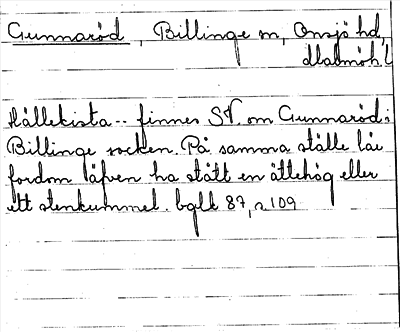 Gunnaröd, Billinge sn, Onsjö hd,
Malmöh. l
Hällekista -- finnes SV. om Gunnaröd i
Billinge socken. På samma ställe lär
fordom äfven ha stått en ättehög eller
ett stenkummel. bglk 87, s 109